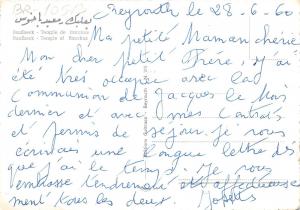 Beyrouth le 28-6-60
بعلبك - معبد باخوس
Baalbeck - Temple de Bacchus
Baalbeck - Temple of Bacchus
Ma petite Maman chérie
Mon cher petit Frère, j'ai
été très occupée avec la
communion de Jacques le mois
dernier et avec mes contrats
et permis de séjour. Je vous
écrirais une longue lettre dès
que j'ai le temps. Je vous
embrasse tendrement et affectueuse
ment tous les deux.